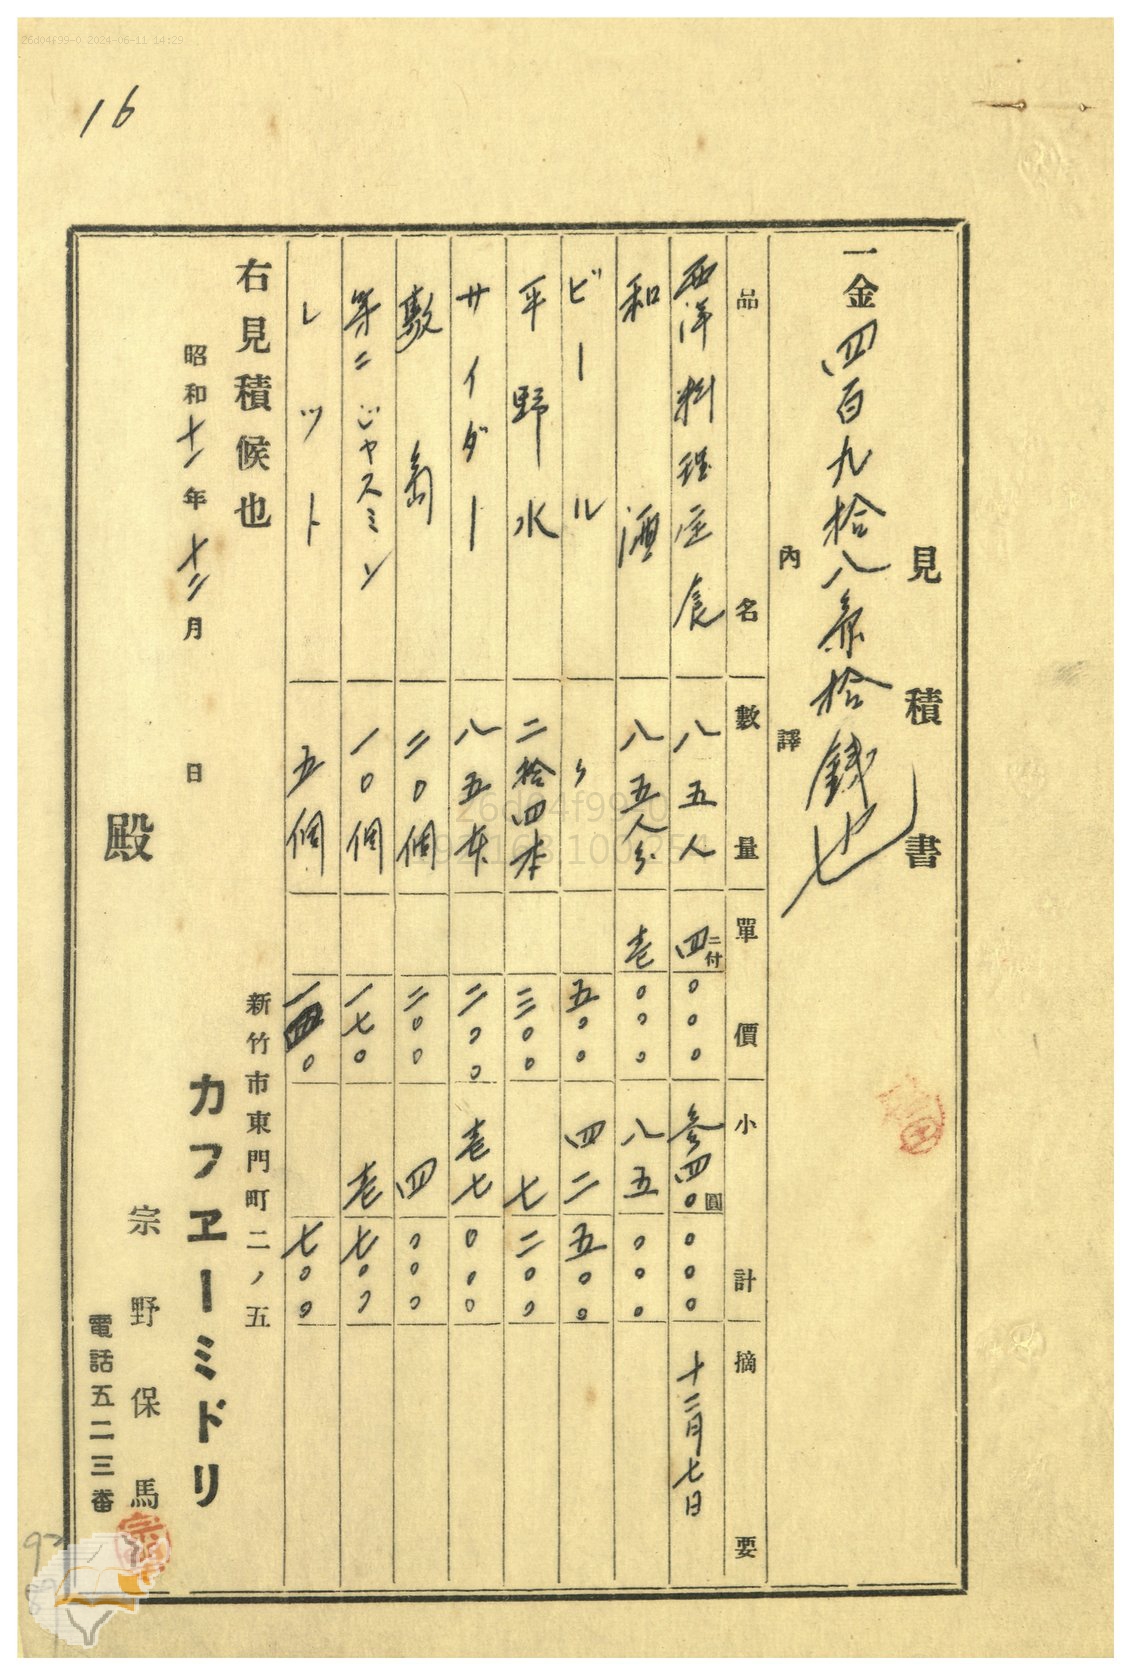 26d04f99-0 2024-06-11 14:29
16
見積書
一金四百九拾八円四拾銭也
内譯
品名 數量 單價 小計 摘要
西洋料理定食 八五人 四二付〇〇〇 参四〇圓〇〇〇 十二月七日
和酒 八五人分 壱〇〇〇 八五〇〇〇
ビール 〃 五〇〇 四二五〇〇
平野水 二拾四本 三〇〇 七二〇〇
サイダー 八五本 二〇〇 壱七〇〇〇
敷島 二〇個 二〇〇 四〇〇〇
第二ジャスミン 一〇個 一七〇 壱七〇〇
レツト 五個 一四〇 七〇〇
右見積候也
昭和十一年十二月 日
新竹市東門町二ノ五
カフヱーミドリ
宗野保馬
電話五二三番
殿
26d04f99-0
192.168.100.254